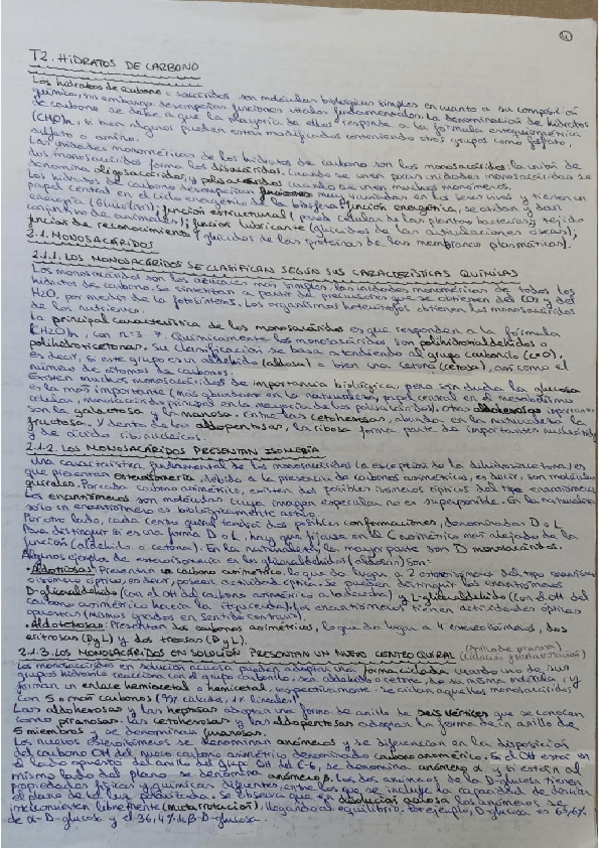 T2. HIDRATOS DE CARBONO
Los hidratos de carbono o sacáridos son moléculas biológicas simples en cuanto a su composición
química, sin embargo, desempeñan funciones vitales fundamentales. La denominación de hidratos
de carbono se debe a que la mayoría de ellos responde a la fórmula estequiométrica
(CHO)n, si bien algunos pueden estar modificados conteniendo otros grupos como fosfato,
sulfato o amino.
Las unidades monoméricas de los hidratos de carbono son los monosacáridos: la unión de
dos monosacáridos forma los disacáridos. Cuando se unen pocas unidades monosacáridas se
denomina oligosacáridos, y polisacáridos cuando se unen muchos monómeros.
Los hidratos de carbono desempeñan funciones muy variadas en los seres vivos y tienen un
papel central en el ciclo energético de la biosfera: función energética, se oxidan y dan
energía (Glucólisis); función estructural (pared celular de las plantas, bacterias y tejido
conjuntivo de animales); función lubricante (glúcidos de las articulaciones óseas);
función de reconocimiento (glúcidos de las proteínas de las membranas plasmáticas).
2.1. MONOSACÁRIDOS
2.1.1. LOS MONOSACÁRIDOS SE CLASIFICAN SEGÚN SUS CARACTERÍSTICAS QUÍMICAS
Los monosacáridos son los azúcares más simples, las unidades monoméricas de todos los
hidratos de carbono. Se sintetizan a partir de precursores que se obtienen del CO2 y del
H2O, por medio de la fotosíntesis. Los organismos heterótrofos obtienen los monosacáridos
de los nutrientes.
La principal característica de los monosacáridos es que responden a la fórmula
(CH2O)n, con n=3-7. Químicamente los monosacáridos son polihidroxialdehídos o
polihidroxicetonas. Su clasificación se basa atendiendo al grupo carbonilo (C=O),
es decir, si este grupo es un aldehído (aldosa) o bien una cetona (cetosa), así como el
número de átomos de carbono.
Existen muchos monosacáridos de importancia biológica, pero sin duda la glucosa
es la más importante (más abundante en la naturaleza, papel central en el metabolismo
celular, monosacárido principal en la mayoría de los polisacáridos). Otras aldohexosas importantes
son la galactosa y la manosa. Entre las cetohexosas, abunda en la naturaleza la
fructosa. Y dentro de las aldopentosas, la ribosa forma parte de importantes
y de ácido ribonucleico.
2.1.2. LOS MONOSACÁRIDOS PRESENTAN ISOMERÍA
Una característica fundamental de los monosacáridos (a excepción de la dihidroxiacetona) es
que presentan estereoisomería, debido a la presencia de carbonos asimétricos, es decir, son moléculas
quirales. Por cada carbono asimétrico, existen dos posibles isómeros ópticos del tipo enantiómero.
Los enantiómeros son moléculas cuya imagen especular no es superponible. En la naturaleza
sólo un enantiómero es biológicamente activo.
Por otro lado, cada centro quiral tendrá dos posibles conformaciones, denominadas D o L.
Para distinguir si es una forma D o L, hay que fijarse en el C asimétrico más alejado de la
función (aldehído o cetona). En la naturaleza la mayor parte son D monosacáridos.
Algunos ejemplos de estereoisomería en los gliceraldehídos (aldosas) son:
· Aldotriosas: Presentan un carbono asimétrico, lo que da lugar a 2 estereoisómeros del tipo enantiómero
o isómero óptico, es decir, poseen actividad óptica. Se pueden distinguir los enantiómeros
D-gliceraldehído (con el OH del carbono asimétrico a la derecha) y L-gliceraldehído (con el OH del
carbono asimétrico hacia la izquierda). Los enantiómeros tienen actividades ópticas
opuestas (mismos grados en sentido contrario).
· Aldotetrosas: Presentan dos carbonos asimétricos, lo que da lugar a 4 estereoisómeros, dos
eritrosas (D y L) y dos treosas (D y L).
2.1.3. LOS MONOSACÁRIDOS EN SOLUCIÓN PRESENTAN UN NUEVO CENTRO QUIRAL
Los monosacáridos en solución acuosa pueden adoptar una forma ciclada cuando uno de sus
grupos hidroxilo reacciona con el grupo carbonilo, sea aldehído o cetona, de su misma molécula, y
forman un enlace hemiacetal o hemicetal, respectivamente. Se ciclan aquellos monosacáridos
con 5 o más carbonos
Las aldohexosas y las heptosas adoptan una forma de anillo de seis vértices que se conocen
como piranosas. Las cetohexosas y las aldopentosas adoptan la forma de un anillo de
5 miembros y se denominan furanosas.
Los nuevos estereoisómeros se denominan anómeros y se diferencian en la disposición
del carbono OH del nuevo carbono asimétrico denominado carbono anomérico. Si el OH está en
el lado opuesto del anillo del grupo OH del C-6, se denomina anómero α, y si están al
mismo lado del plano se denomina anómero β. Los dos anómeros de la D-glucosa tienen
propiedades físicas y químicas diferentes, entre las que se incluye la capacidad de desviar
el plano de la luz polarizada. Se observa que en disolución acuosa los anómeros se
interconvierten libremente (mutarrotación), llegando al equilibrio. Por ejemplo, D-glucosa es 63,6%
de α-D-glucosa y el 36,4% de β-D-glucosa.